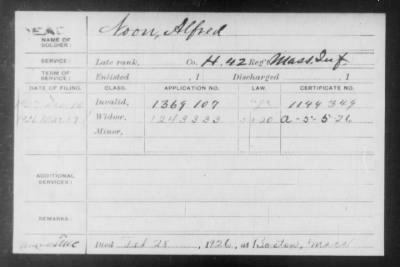 DEAD
NAME OF SOLDIER: Noon, Alfred
SERVICE: Late rank, Co. H. 42 Reg't Mass. Inf
TERM OF SERVICE: Enlisted , 1 Discharged , 1
DATE OF FILING. CLASS. APPLICATION NO. LAW. CERTIFICATE NO.
Invalid, 1369 107 1144 349
1926 Mar 19 Widow, 1243333 A-5-5-26
Minor,
ADDITIONAL SERVICES:
REMARKS:
Died Feb 28, 1926, at Boston, Mass